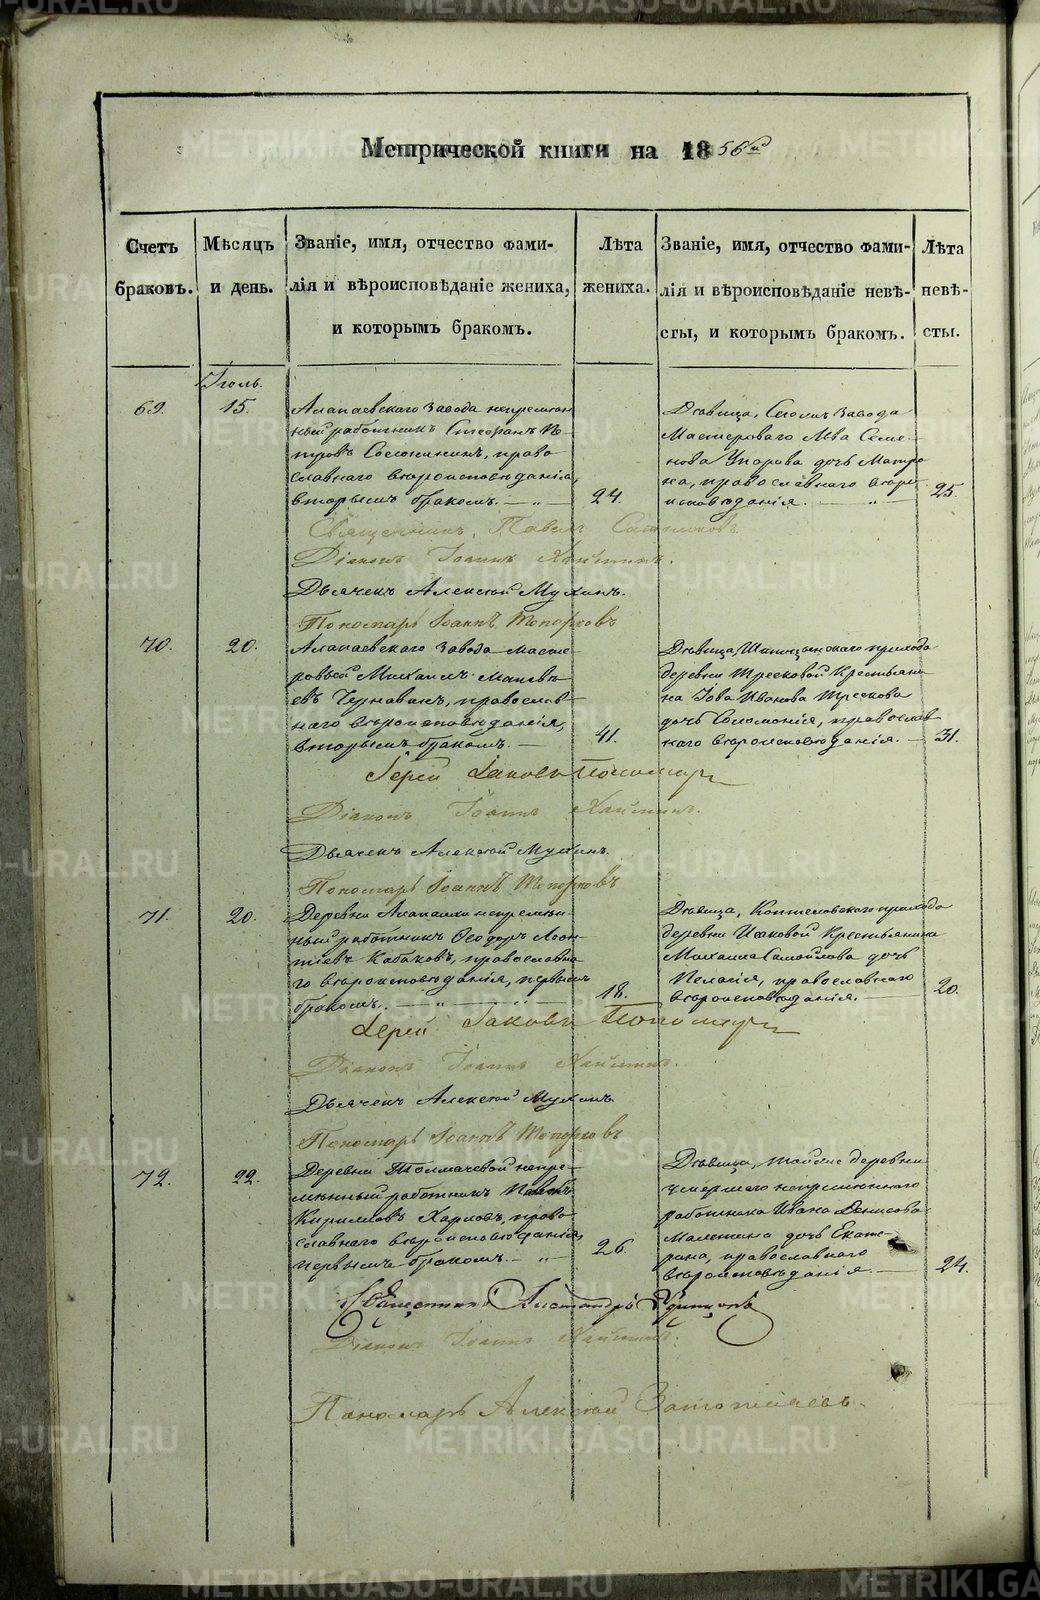 METRIKI.GASO-URAL.RU
Метрической книги на 1856й
Счетъ браковъ.
Мѣсяцъ и день.
Званіе, имя, отчество фами-
лія и вѣроисповѣданіе жениха,
и которымъ бракомъ.
Лѣта жениха.
Званіе, имя, отчество фами-
лія и вѣроисповѣданіе невѣ-
сты, и которымъ бракомъ.
Лѣта невѣ-
сты.
Іюль.
69.
15.
Алапаевскаго завода непремѣн
ный работникъ Стефанъ Пе-
тровъ право
славнаго вѣроисповѣданія,
вторымъ бракомъ. — „ —
24.
Дѣвица, завода
Мастероваго Льва Семе-
нова Упорова дочь Матро
на, православнаго вѣро-
исповѣданія. — „ —
25.
Священникъ Павелъ
Діаконъ Іоаннъ
Дьячекъ Алексѣй Мухинъ.
Пономарь Іоаннъ Топорковъ
70.
20.
Алапаевскаго завода масте
ровый Михаилъ
евъ Чернавинъ, православ
наго вѣроисповѣданія,
вторымъ бракомъ. —
41.
Дѣвица, прихода
деревни Тресковой Крестьяни
на Іова Иванова Трескова
дочь Соломонія, православ
наго вѣроисповѣданія. —
31.
Іерей Іаковъ Пономарев
Діаконъ Іоаннъ
Дьячекъ Алексѣй Мухинъ.
Пономарь Іоаннъ Топорковъ
71.
20.
Деревни Алапаихи непремѣн-
ный работникъ Ѳеодоръ Леон
тіевъ Кабаковъ, православна
го вѣроисповѣданія, первымъ
бракомъ. — „ —
18.
Дѣвица, Коптеловскаго прихода
деревни Исаковой Крестьянина
Михаила Самойлова дочь
Пелагія, православнаго
вѣроисповѣданія. —
20.
Іерей Іаковъ Пономарев
Діаконъ Іоаннъ
Дьячекъ Алексѣй Мухинъ.
Пономарь Іоаннъ Топорковъ
72.
22.
Деревни Толмачевой непре-
мѣнный работникъ
Кириловъ Харловъ, право
славнаго вѣроисповѣданія,
первымъ бракомъ. — „ —
26.
Дѣвица, деревни
умершаго непремѣннаго
работника Ивана Денисова
Малыгина дочь Екате-
рина, православнаго
вѣроисповѣданія. —
24.
Священникъ Александръ Удинцовъ
Діаконъ Іоаннъ
Пономарь Алексѣй